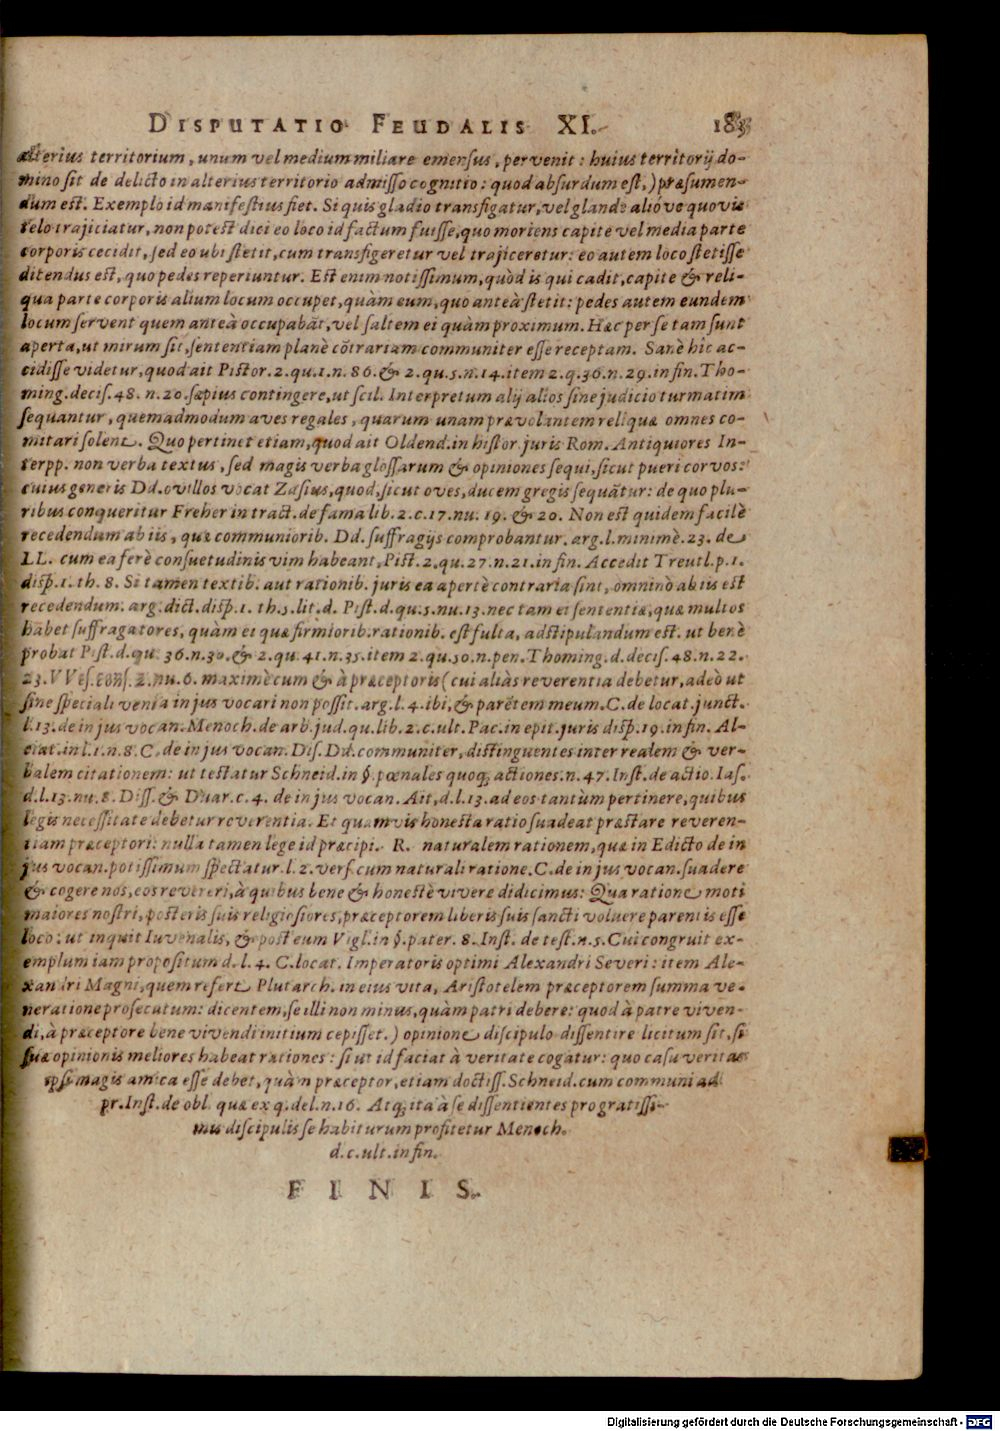 DISPUTATIO FEUDALIS XI. 183
alterius territorium, unum vel medium miliare emensus, pervenit: huius territorij do-
mino sit de delicto in alterius territorio admisso cognitio: quod absurdum est,) præsumen-
dum est. Exemplo id manifestius fiet. Si quis gladio transfigatur, vel glande alióve quovis
telo trajiciatur, non potest dici eo loco id factum fuisse, quo moriens capite vel media parte
corporis cecidit, sed eo ubi stetit, cum transfigeretur vel trajiceretur: eo autem loco stetisse
ditendus est, quo pedes reperiuntur. Est enim notissimum, quòd is qui cadit, capite & reli-
qua parte corporis alium locum occupet, quàm eum, quo anteà stetit: pedes autem eundem
locum servent quem anteà occupabāt, vel saltem ei quàm proximum. Hæc per se tam sunt
aperta, ut mirum sit, sententiam planè cōtrariam communiter esse receptam. Sanè hîc ac-
cidisse videtur, quod ait Pistor. 2. qu. 1. n. 86. & 2. qu. 5. n. 14. item 2. q. 36. n. 29. in fin. Tho-
ming. decis. 48. n. 20. sæpius contingere, ut scil. Interpretum alij alios sine judicio turmatim
sequantur, quemadmodum aves regales, quarum unam prævolantem reliquæ omnes co-
mitari solent. Quo pertinet etiam, quod ait Oldend. in histor. juris Rom. Antiquiores In-
terpp. non verba textus, sed magis verba glossarum & opiniones sequi, sicut pueri corvos:
cuius generis Dd. ovillos vocat Zasius, quod, sicut oves, ducem gregis sequātur: de quo plu-
ribus conqueritur Freher in tract. de fama lib. 2. c. 17. nu. 19. & 20. Non est quidem facilè
recedendum ab iis, quæ communiorib. Dd. suffragijs comprobantur. arg. l. minimè. 23. de
LL. cum ea ferè consuetudinis vim habeant, Pist. 2. qu. 27. n. 21. in fin. Accedit Treutl. p. 1.
disp. 1. th. 8. Si tamen textib. aut rationib. juris ea apertè contraria sint, omninò ab iis est
recedendum. arg. dict. disp. 1. th. 5. lit. d. Pist. d. qu. 5. nu. 13. nec tam ei sententiæ, quæ multos
habet suffragatores, quàm ei quæ firmiorib. rationib. est fulta, adstipulandum est. ut benè
probat Pist. d. qu. 36. n. 30. & 2. qu. 41. n. 35. item 2. qu. 50. n. pen. Thoming. d. decis. 48. n. 22.
23. VVes. cons. 2. nu. 6. maximè cum & à præceptoris (cui aliàs reverentia debetur, adeò ut
sine speciali venia in jus vocari non possit. arg. l. 4. ibi, & parētem meum. C. de locat. junct.
l. 13. de in jus vocan. Menoch. de arb. jud. qu. lib. 2. c. ult. Pac. in epit. juris disp. 19. in fin. Al-
ciat. in l. 1. n. 8. C. de in jus vocan. Dis. Dd. communiter, distinguentes inter realem & ver-
balem citationem: ut testatur Schneid. in §. pœnales quoq; actiones. n. 47. Inst. de actio. Ias.
d. l. 13. nu. 8. Diss. & Duar. c. 4. de in jus vocan. Ait, d. l. 13. ad eos tantùm pertinere, quibus
legis necessitate debetur reverentia. Et quamvis honesta ratio suadeat præstare reveren-
tiam præceptori: nulla tamen lege id præcipi. R. naturalem rationem, quæ in Edicto de in
jus vocan. potissimum spectatur. l. 2. vers. cum naturali ratione. C. de in jus vocan. suadere
& cogere nos, eos revereri, à quibus bene & honestè vivere didicimus: Qua ratione moti
maiores nostri, posteris suis religiosiores, præceptorem liberis suis sancti voluere parentis esse
loco: ut inquit Iuvenalis, & post eum Vigl. in §. pater. 8. Inst. de test. n. 5. Cui congruit ex-
emplum iam propositum d. l. 4. C. locat. Imperatoris optimi Alexandri Severi: item Ale-
xandri Magni, quem refert Plutarch. in eius vita, Aristotelem præceptorem summa ve-
neratione prosecutum: dicentem, se illi non minus, quàm patri debere: quod à patre viven-
di, à præceptore bene vivendi initium cepisset.) opinione discipulo dissentire licitum sit, si
suæ opinionis meliores habeat rationes: si ut id faciat à veritate cogatur: quo casu veritas
ipsi magis amica esse debet, quàm præceptor, etiam doctiss. Schneid. cum communi ad
pr. Inst. de obl. quæ ex q. del. n. 16. Atq; ita à se dissentientes pro gratissi-
mis discipulis se habiturum profitetur Menoch.
d. c. ult. in fin.
FINIS.
Digitalisierung gefördert durch die Deutsche Forschungsgemeinschaft - DFG